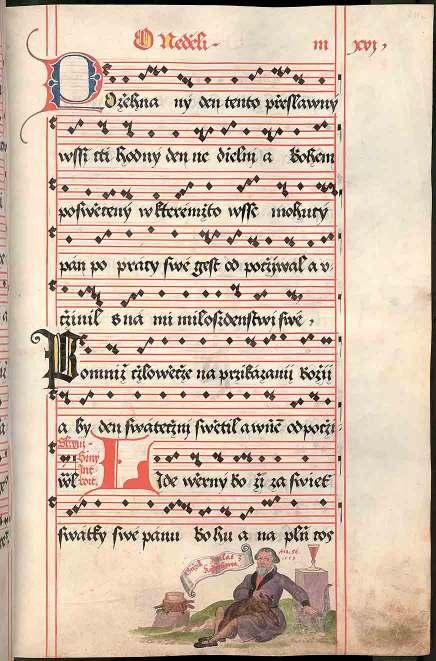 O Neděli
m xvj
Požehna ný den tento přeslawný
wssi cti hodný den ne dielni a Bohem
poswěcený w kterémžto wsse mohutý
pán po prácy swé gest od počýwal a v-
čžinil s ná mi milosrdenstwi swé,
Pomniž čzlowěče na przikázanij Božij
a by den swátečznj swětil a wně odpočj-
wal
Lide wěrný bo ží za swiet
swátky swé pánu bohu a na plň ros